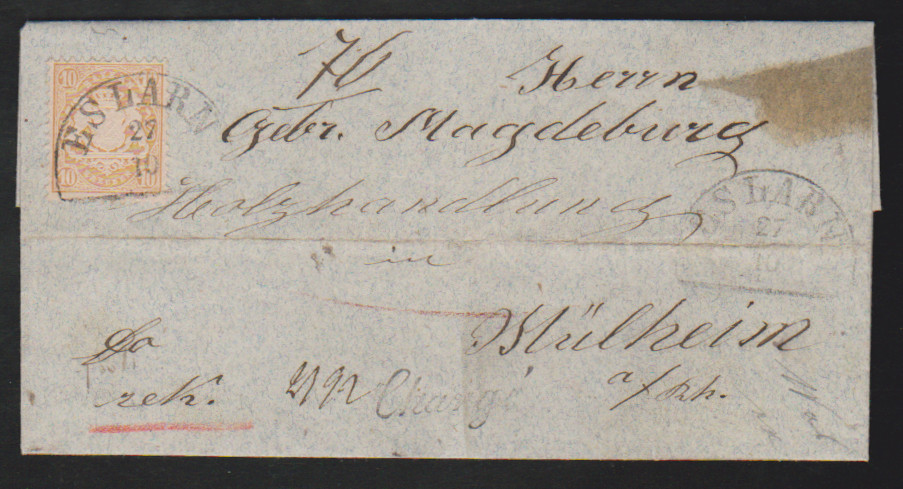 10 10
10 10
ESLARN
27
10
76
Herrn
Gebr. Magdeburg
Holzhandlung
in
Mülheim
a/Rh.
ESLARN
27
10
rek.
Chargé